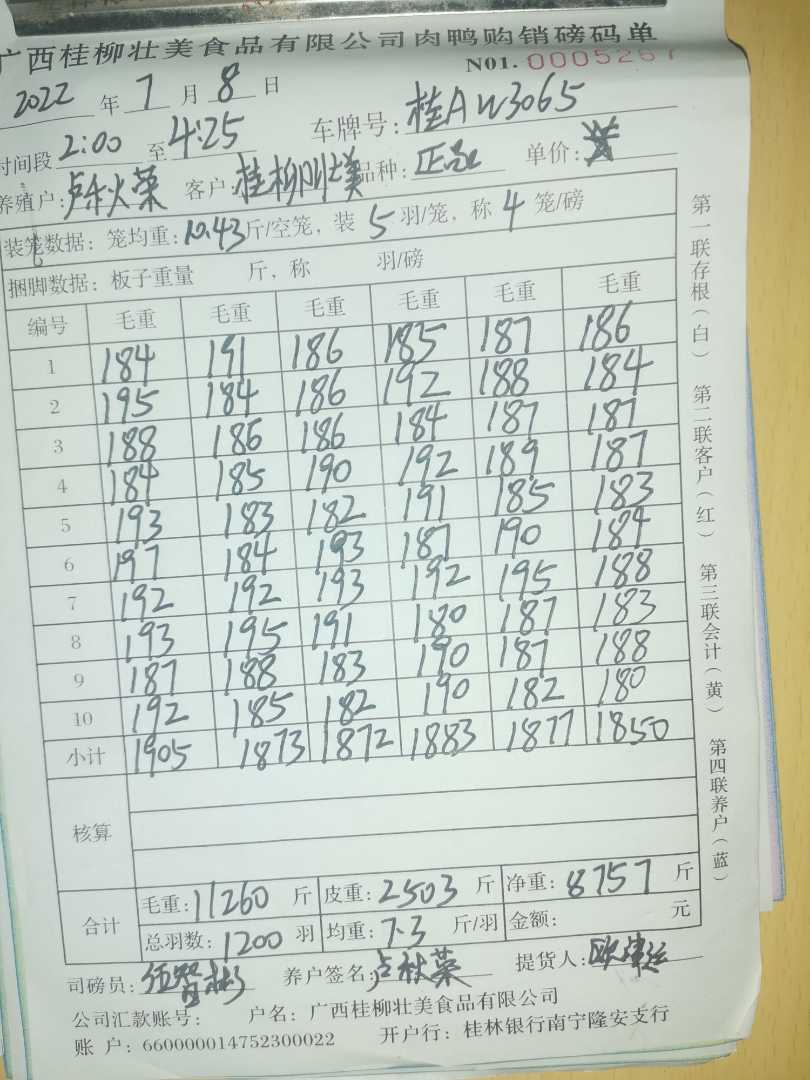 广西桂柳壮美食品有限公司肉鸭购销磅码单
N01. 0005267
2022 年 7 月 8 日
时间段 2:00 至 4:25 车牌号: 桂A W3065
养殖户: 卢秋荣 客户: 桂柳壮美 品种: 正品 单价:
装笼数据: 笼均重: 10.43 斤/空笼, 装 5 羽/笼, 称 4 笼/磅
捆脚数据: 板子重量 斤, 称 羽/磅
编号 毛重 毛重 毛重 毛重 毛重 毛重
1 184 191 186 185 187 186
2 195 184 186 192 188 184
3 188 186 186 184 187 187
4 184 185 190 192 189 187
5 193 183 182 191 185 183
6 197 184 193 187 190 184
7 192 192 193 192 195 188
8 193 195 191 180 187 183
9 187 188 183 190 187 188
10 192 185 182 190 182 180
小计 1905 1873 1872 1883 1877 1850
核算
合计 毛重: 11260 斤 皮重: 2503 斤 净重: 8757 斤
总羽数: 1200 羽 均重: 7.3 斤/羽 金额: 元
司磅员: 伍智彬 养户签名: 卢秋荣 提货人:
公司汇款账号: 户名: 广西桂柳壮美食品有限公司
账 户: 660000014752300022 开户行: 桂林银行南宁隆安支行
第一联存根(白) 第二联客户(红) 第三联会计(黄) 第四联养户(蓝)